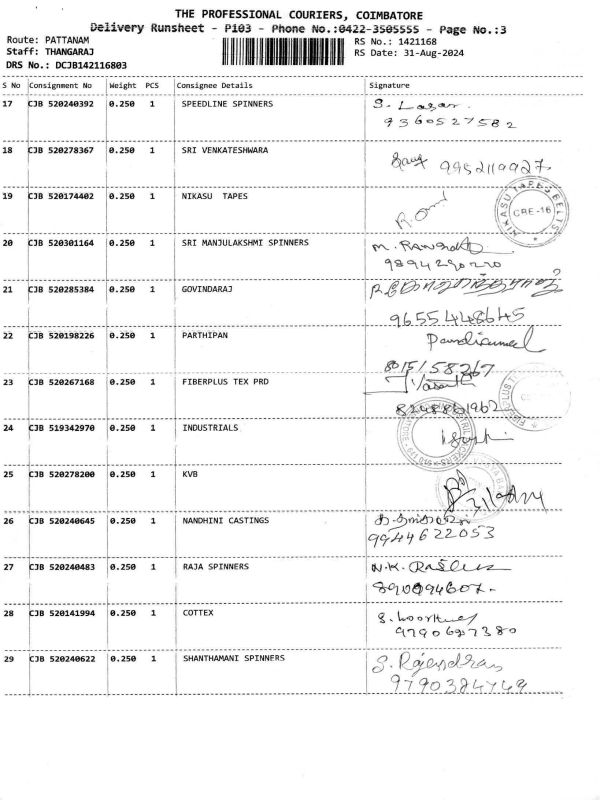 THE PROFESSIONAL COURIERS, COIMBATORE
Delivery Runsheet - P103 - Phone No.:0422-3505555 - Page No.:3
Route: PATTANAM
RS No.: 1421168
Staff: THANGARAJ
RS Date: 31-Aug-2024
DRS No.: DCJB142116803
S No Consignment No Weight PCS Consignee Details Signature
17 CJB 520240392 0.250 1 SPEEDLINE SPINNERS S. Lasar.
9360527582
18 CJB 520278367 0.250 1 SRI VENKATESHWARA
9952119927
19 CJB 520174402 0.250 1 NIKASU TAPES
NIKASU TAPES BELTS CBE-16
20 CJB 520301164 0.250 1 SRI MANJULAKSHMI SPINNERS M.
9894290220
21 CJB 520285384 0.250 1 GOVINDARAJ
9655448645
22 CJB 520198226 0.250 1 PARTHIPAN
8015158267
23 CJB 520267168 0.250 1 FIBERPLUS TEX PRD
24 CJB 519342970 0.250 1 INDUSTRIALS
25 CJB 520278200 0.250 1 KVB
26 CJB 520240645 0.250 1 NANDHINI CASTINGS
9944622053
27 CJB 520240483 0.250 1 RAJA SPINNERS N.K.
28 CJB 520141994 0.250 1 COTTEX
29 CJB 520240622 0.250 1 SHANTHAMANI SPINNERS S. Rajendran
9790384749